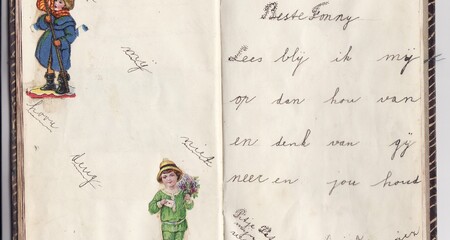 mij
hoou
deug
niet
Beste Fonny
Lees blij ik mij
op dan hou van
en denk van gij
neer en jou houd